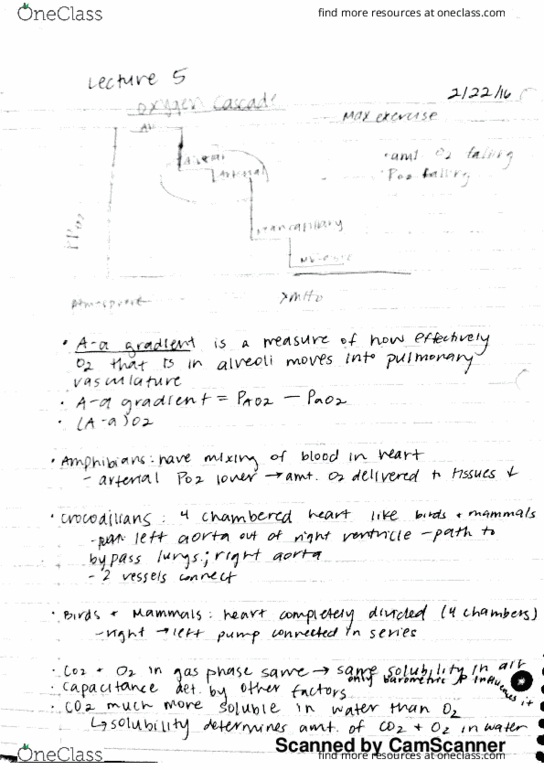 OneClass
find more resources at oneclass.com
Lecture 5
2/22/16
oxygen cascade
Max exercise
Air
Alveolar
Arterial
Mean capillary
Venous
· amt O2 falling
PO2 falling
PPO2
Atmosphere
· A-a gradient is a measure of how effectively
O2 that is in alveoli moves into pulmonary
vasculature
· A-a gradient = PAO2 - PaO2
· (A-a)O2
· Amphibians: have mixing of blood in heart
- arterial PO2 lower → amt. O2 delivered to tissues ↓
· crocodilians: 4 chambered heart like birds + mammals
- left aorta out of right ventricle - path to
bypass lungs; right aorta
- 2 vessels connect
· Birds + Mammals: heart completely divided (4 chambers)
- right → left pump connected in series
· CO2 + O2 in gas phase same → same solubility in air
only barometric P influences it
· capacitance det. by other factors
· CO2 much more soluble in water than O2
↳ solubility determines amt. of CO2 + O2 in water
Scanned by CamScanner
OneClass
find more resources at oneclass.com